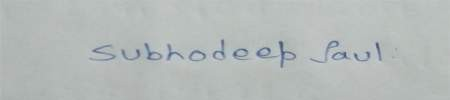 Subhodeep Paul.